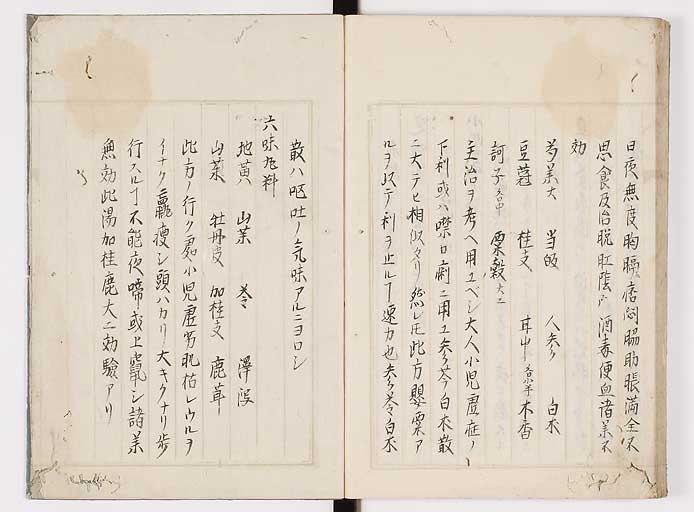 日夜無度胸膈痞悶脇肋脹満全不
思食及治脱肛陰 酒毒便血諸薬不
効
芍薬大 当皈 人参 白朮
豆蔲 桂支 甘中 木香
訶子 粟殻大ニ
主治ヲ考ヘ用ユベシ大人小児虚症ノ
下利或ハ噤口痢ニ用ユ参苓白朮散
ニ大テヒ相似タリ然レ𪜈此方罌粟ア
ルヲ以テ利ヲ止ルヿ速カ也参苓白朮
散ハ呕吐ノ気味アルニヨロシ
六味丸料
地黄 山茱 苓 澤瀉
山薬 牡丹皮 加桂支 鹿茸
此方ノ行ク処小児虚労肌枯レウルヲ
イナク羸瘦シ頭ハカリ大キクナリ歩
行スルヿ不能夜啼或上竄シ諸薬
無効此湯加桂鹿大ニ効驗アリ